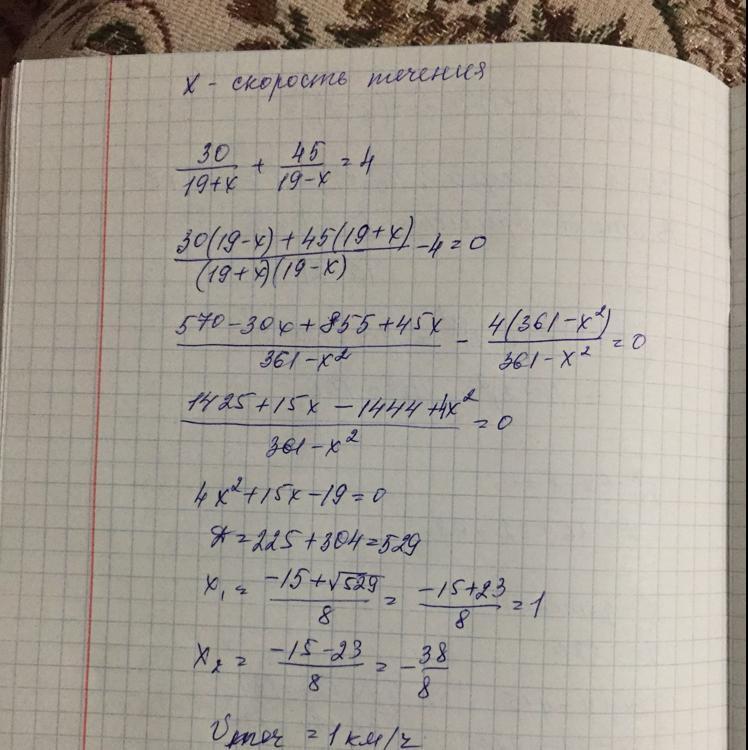 x - скорость течения
30/(19+x) + 45/(19-x) = 4
(30(19-x)+45(19+x))/((19+x)(19-x)) - 4 = 0
(570-30x+855+45x)/(361-x²) - 4(361-x²)/(361-x²) = 0
(1425+15x-1444+4x²)/(361-x²) = 0
4x²+15x-19=0
D=225+304=529
x₁ = (-15+√529)/8 = (-15+23)/8 = 1
x₂ = (-15-23)/8 = -38/8
Vтеч = 1 км/ч